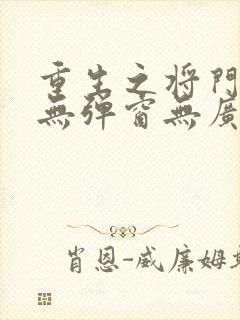 重生之将門
無弹窗無廣
肖恩-威廉姆斯